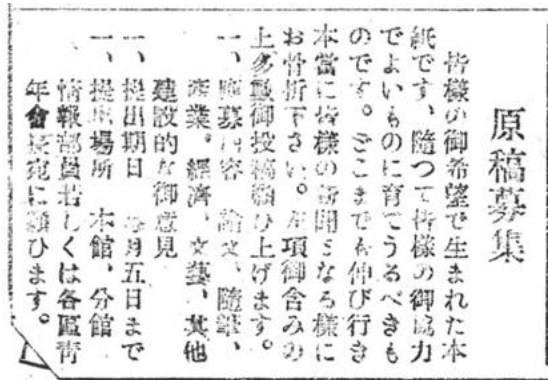 原稿募集
皆様の御希望で生まれた本
紙です、隨つて皆様の御協力
でよいものに育てうるべきも
のです。どこまでも伸び行き
本當に皆様の新聞となる様に
お骨折下さい。左項御含みの
上多數御投稿願ひ上げます。
一、應募內容 論文、隨筆、
產業、經濟、文藝、其他
建設的な御意見
一、提出期日 每月五日まで
一、提出場所 本館、分館
情報部員若しくは各區靑
年會長宛に願ひます。